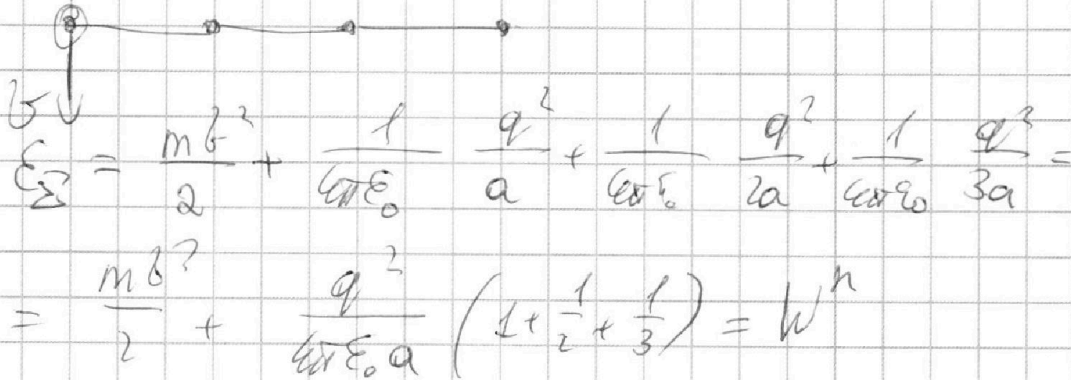 υ
ε_Σ = mυ²/2 + 1/(4πε₀) q²/a + 1/(4πε₀) q²/2a + 1/(4πε₀) q²/3a =
= mυ²/2 + q²/(4πε₀a) (1 + 1/2 + 1/3) = Wⁿ